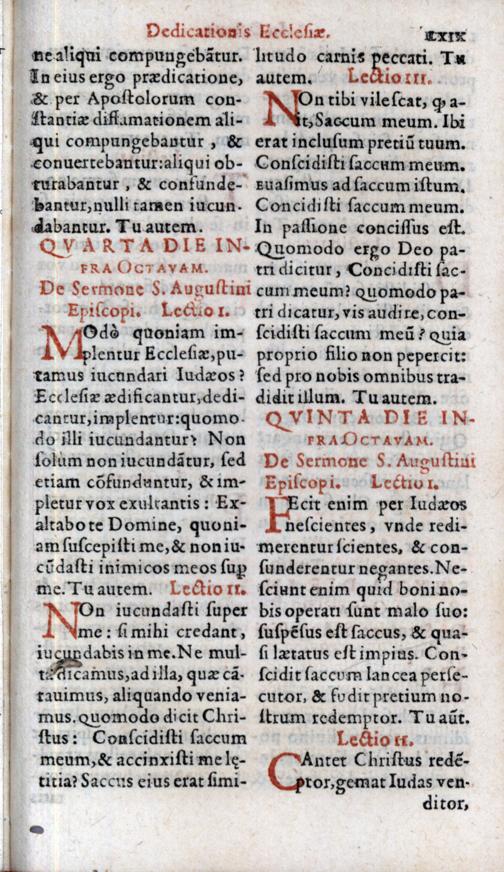 Dedicationis Ecclesiæ. LXIX
ne aliqui compungebãtur.
In eius ergo prædicatione,
& per Apostolorum con-
stantiæ diffamationem ali-
qui compungebantur, &
conuertebantur: aliqui ob-
turabantur, & confunde-
bantur, nulli tamen iucun-
dabantur. Tu autem.
QVARTA DIE IN-
FRA OCTAVAM.
De Sermone S. Augustini
Episcopi. Lectio I.
MOdò quoniam im-
plentur Ecclesiæ, pu-
tamus iucundari Iudæos?
Ecclesiæ ædificantur, dedi-
cantur, implentur: quomo-
do illi iucundantur? Non
solùm non iucundãtur, sed
etiam cõfunduntur, & im-
pletur vox exultantis: Ex-
altabo te Domine, quoni-
am suscepisti me, & non iu-
cũdasti inimicos meos suꝑ
me. Tu autem. Lectio II.
NOn iucundasti super
me: si mihi credant,
iucundabis in me. Ne mul-
ta dicamus, ad illa, quæ cã-
tauimus, aliquando venia-
mus. Quomodo dicit Chri-
stus: Conscidisti saccum
meum, & accinxisti me lę-
titia? Saccus eius erat simi-
litudo carnis peccati. Tu
autem. Lectio III.
NOn tibi vilescat, ꝙ a-
it, Saccum meum. Ibi
erat inclusum pretiũ tuum.
Conscidisti saccum meum.
Euasimus ad saccum istum.
Concidisti saccum meum.
In passione concissus est.
Quomodo ergo Deo pa-
tri dicitur, Concidisti sac-
cum meum? Quomodo pa-
tri dicatur, vis audire, con-
scidisti saccum meũ? Quia
proprio filio non pepercit:
sed pro nobis omnibus tra-
didit illum. Tu autem.
QVINTA DIE IN-
FRA OCTAVAM.
De Sermone S. Augustini
Episcopi. Lectio I.
FEcit enim per Iudæos
nescientes, vnde redi-
merentur scientes, & con-
funderentur negantes. Ne-
sciunt enim quid boni no-
bis operati sunt malo suo:
suspẽsus est saccus, & qua-
si lætatus est impius. Con-
scidit saccum lancea perse-
cutor, & fudit pretium no-
strum redemptor. Tu aũt.
Lectio II.
CAntet Christus redẽ-
ptor, gemat Iudas ven-
ditor,